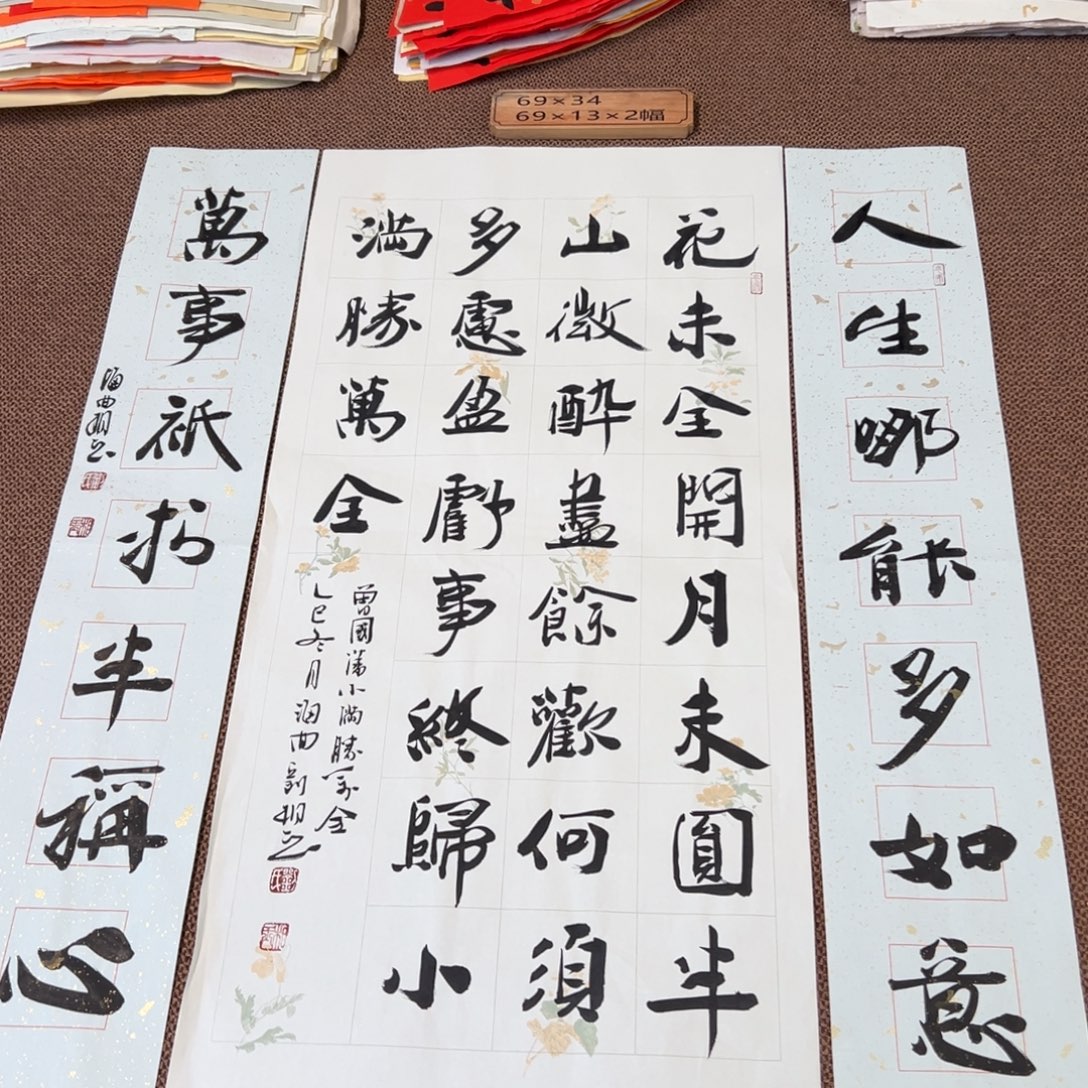 69×34
69×13×2幅
人生哪能多如意
花未全開月未圓半
山微醉盡餘歡何須
多慮盈虧事終歸小
滿勝萬全
曾國藩小滿勝万全
乙巳冬月海曲劉
萬事祇求半稱心
海曲